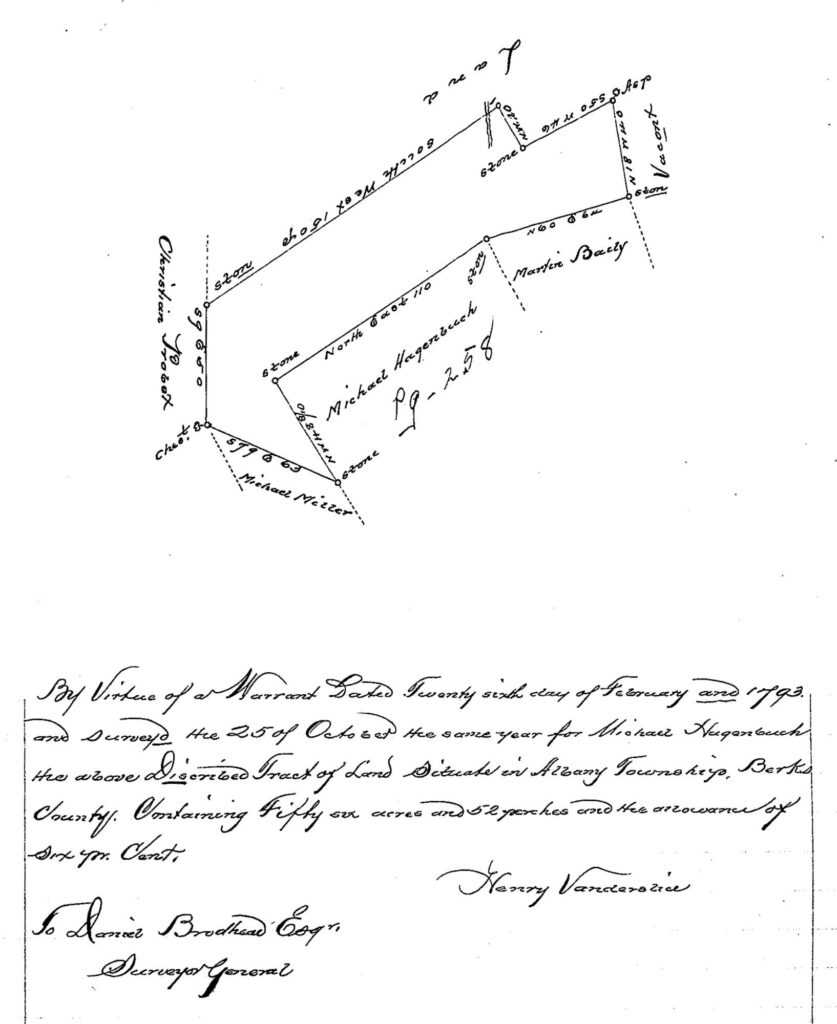 Land
Vacant
Asp
S50 W 46
NW 20
Stone
N 18 W 40
Ston
South West 150 p
N60 E 54
Martin Baily
Stone
Stone
Christian Probst
S9 E 50
North East 110
Stone
Michael Hagenbuch
Pg - 258
NW 43 8/10
Chest.
S79 E 63
Stone
Michael Miller
By Virtue of a Warrant Dated Twenty sixth day of February and 1793.
and Survey'd the 25 of October the same year for Michael Hagenbuch
the above Discribed Tract of Land Situate in Albany Township, Berks
County. Containing Fifty six acres and 52 perches and the allowance of
six pr. Cent.
Henry Vanderslice
To Daniel Brodhead Esqr.
Surveyor General